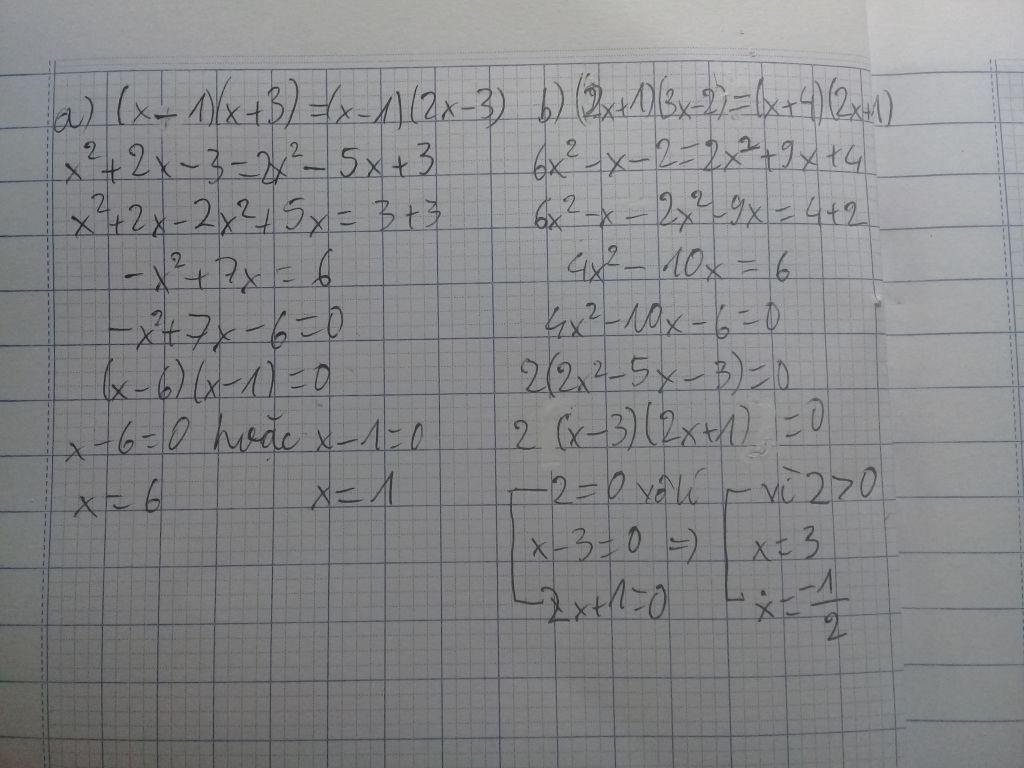 a) (x-1)(x+3)=(x-1)(2x-3)
x²+2x-3=2x²-5x+3
x²+2x-2x²+5x=3+3
-x²+7x=6
-x²+7x-6=0
(x-6)(x-1)=0
x-6=0 hoặc x-1=0
x=6 x=1
b) (2x+1)(3x-2)=(x+4)(2x+1)
6x²-x-2=2x²+9x+4
6x²-x-2x²-9x=4+2
4x²-10x=6
4x²-10x-6=0
2(2x²-5x-3)=0
2 (x-3)(2x+1) =0
2=0 vôlí vì 2>0
x-3=0 => x=3
2x+1=0 x=-1/2